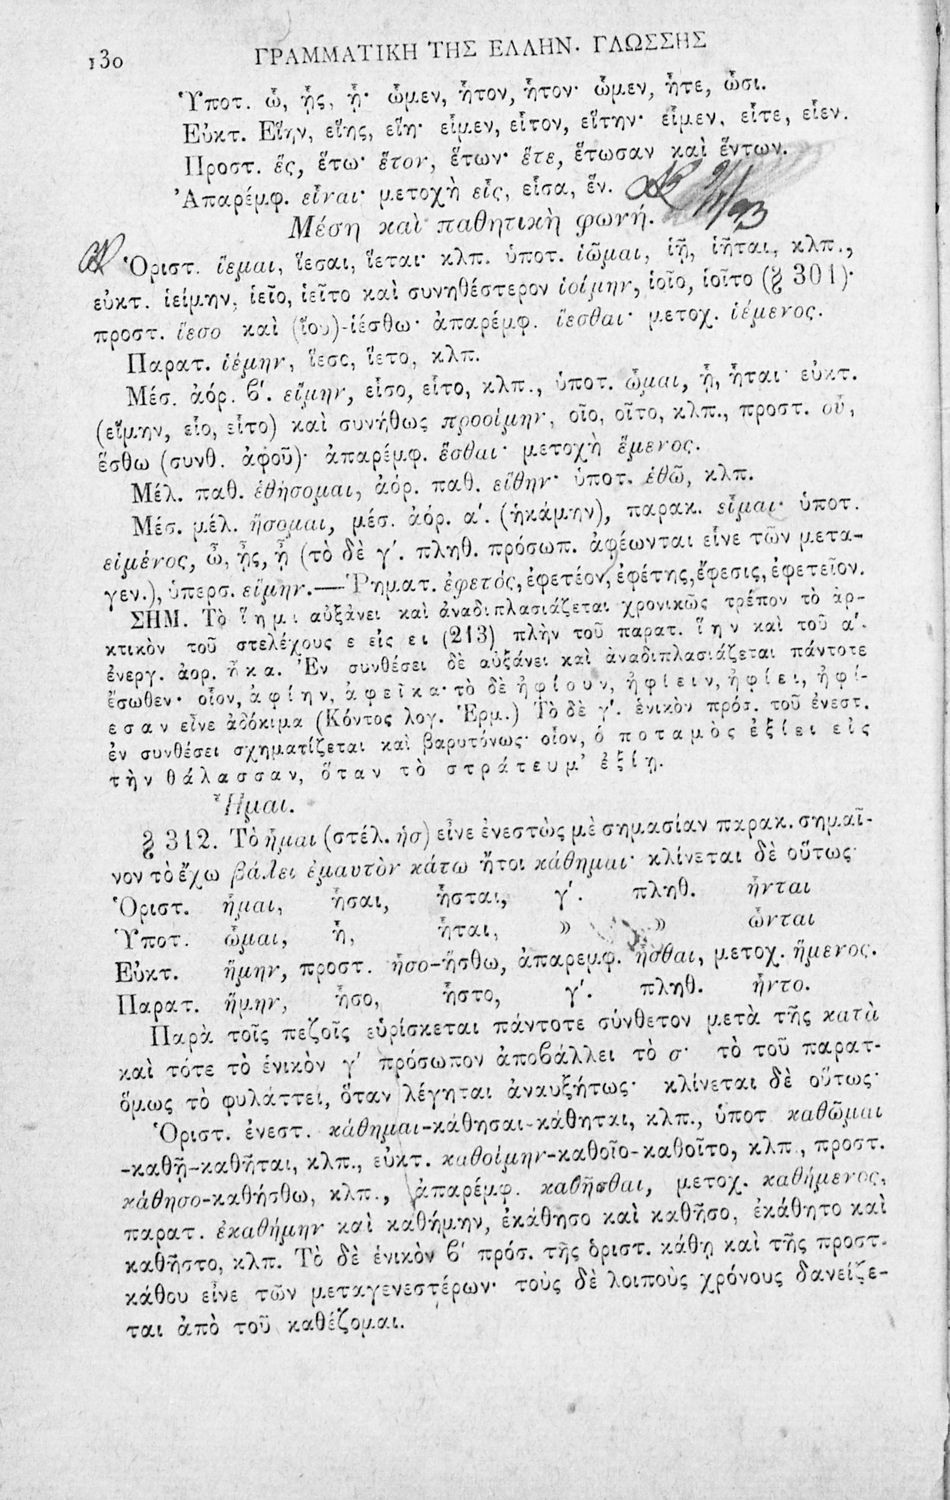 130
ΓΡΑΜΜΑΤΙΚΗ ΤΗΣ ΕΛΛΗΝ. ΓΛΩΣΣΗΣ
Ὑποτ. ὦ, ᾖς, ᾖ· ὦμεν, ἦτον, ἦτον· ὦμεν, ἦτε, ὦσι.
Εὐκτ. Εἵην, εἵης, εἵη· εἷμεν, εἷτον, εἵτην· εἷμεν, εἷτε, εἷεν.
Προστ. ἕς, ἕτω· ἕτον, ἕτων· ἕτε, ἕτωσαν καὶ ἕντων.
Ἀπαρέμφ. εἷναι· μετοχὴ εἷς, εἷσα, ἕν.
Μέση καὶ παθητικὴ φωνή.
Ὁριστ. ἵεμαι, ἵεσαι, ἵεται· κλπ. ὑποτ. ἱῶμαι, ἱῇ, ἱῆται, κλπ.,
εὐκτ. ἱείμην, ἱεῖο, ἱεῖτο καὶ συνηθέστερον ἱοίμην, ἱοῖο, ἱοῖτο (§ 301)·
προστ. ἵεσο καὶ (ἵου)-ἱέσθω· ἀπαρέμφ. ἵεσθαι· μετοχ. ἱέμενος.
Παρατ. ἱέμην, ἵεσο, ἵετο, κλπ.
Μέσ. ἀόρ. β'. εἵμην, εἷσο, εἷτο, κλπ., ὑποτ. ὧμαι, ᾗ, ἧται· εὐκτ.
(εἵμην, εἷο, εἷτο) καὶ συνήθως προοίμην, οἷο, οἷτο, κλπ., προστ. οὗ,
ἕσθω (συνθ. ἀφοῦ)· ἀπαρέμφ. ἕσθαι· μετοχὴ ἕμενος.
Μέλ. παθ. ἑθήσομαι, ἀόρ. παθ. εἵθην· ὑποτ. ἑθῶ, κλπ.
Μέσ. μέλ. ἥσομαι, μέσ. ἀόρ. α'. (ἡκάμην), παρακ. εἷμαι· ὑποτ.
εἱμένος, ὦ, ᾖς, ᾖ (τὸ δὲ γ'. πληθ. πρόσωπ. ἀφέωνται εἶνε τῶν μετα-
γεν.), ὑπερσ. εἵμην.—Ῥηματ. ἐφετός, ἐφετέον, ἐφέτης, ἔφεσις, ἐφετεῖον.
ΣΗΜ. Τὸ ἵημι αὐξάνει καὶ ἀναδιπλασιάζεται χρονικῶς τρέπον τὸ ἀρ-
κτικὸν τοῦ στελέχους ε εἰς ει (213) πλὴν τοῦ παρατ. ἵην καὶ τοῦ α'.
ἐνεργ. ἀορ. ἧκα. Ἐν συνθέσει δὲ αὐξάνει καὶ ἀναδιπλασιάζεται πάντοτε
ἔσωθεν· οἷον, ἀφίην, ἀφεῖκα· τὸ δὲ ἠφίουν, ἠφίειν, ἠφίει, ἠφί-
εσαν εἶνε ἀδόκιμα (Κόντος λογ. Ἑρμ.) Τὸ δὲ γ'. ἑνικὸν πρόσ. τοῦ ἐνεστ.
ἐν συνθέσει σχηματίζεται καὶ βαρυτόνως· οἷον, ὁ ποταμὸς ἐξίει εἰς
τὴν θάλασσαν, ὅταν τὸ στράτευμ' ἐξίῃ.
Ἧμαι.
§ 312. Τὸ ἧμαι (στέλ. ἡσ) εἶνε ἐνεστὼς μὲ σημασίαν παρακ. σημαῖ-
νον τὸ ἔχω βάλει ἐμαυτὸν κάτω ἤτοι κάθημαι· κλίνεται δὲ οὕτως·
Ὁριστ. ἧμαι, ἧσαι, ἧσται, γ'. πληθ. ἧνται
Ὑποτ. ὧμαι, ᾗ, ἧται, » » ὧνται
Εὐκτ. ἥμην, προστ. ἧσο-ἥσθω, ἀπαρεμφ. ἧσθαι, μετοχ. ἥμενος.
Παρατ. ἥμην, ἧσο, ἧστο, γ'. πληθ. ἧντο.
Παρὰ τοῖς πεζοῖς εὑρίσκεται πάντοτε σύνθετον μετὰ τῆς κατὰ
καὶ τότε τὸ ἑνικὸν γ' πρόσωπον ἀποβάλλει τὸ σ· τὸ τοῦ παρατ-
ὅμως τὸ φυλάττει, ὅταν λέγηται ἀναυξήτως· κλίνεται δὲ οὕτως·
Ὁριστ. ἐνεστ. κάθημαι-κάθησαι-κάθηται, κλπ., ὑποτ καθῶμαι
-καθῇ-καθῆται, κλπ., εὐκτ. καθοίμην-καθοῖο-καθοῖτο, κλπ., προστ.
κάθησο-καθήσθω, κλπ., ἀπαρέμφ. καθῆσθαι, μετοχ. καθήμενος,
παρατ. ἐκαθήμην καὶ καθήμην, ἐκάθησο καὶ καθῆσο, ἐκάθητο καὶ
καθῆστο, κλπ. Τὸ δὲ ἑνικὸν β' πρόσ. τῆς ὁριστ. κάθῃ καὶ τῆς προστ.
κάθου εἶνε τῶν μεταγενεστέρων· τοὺς δὲ λοιποὺς χρόνους δανείζε-
ται ἀπὸ τοῦ καθέζομαι.